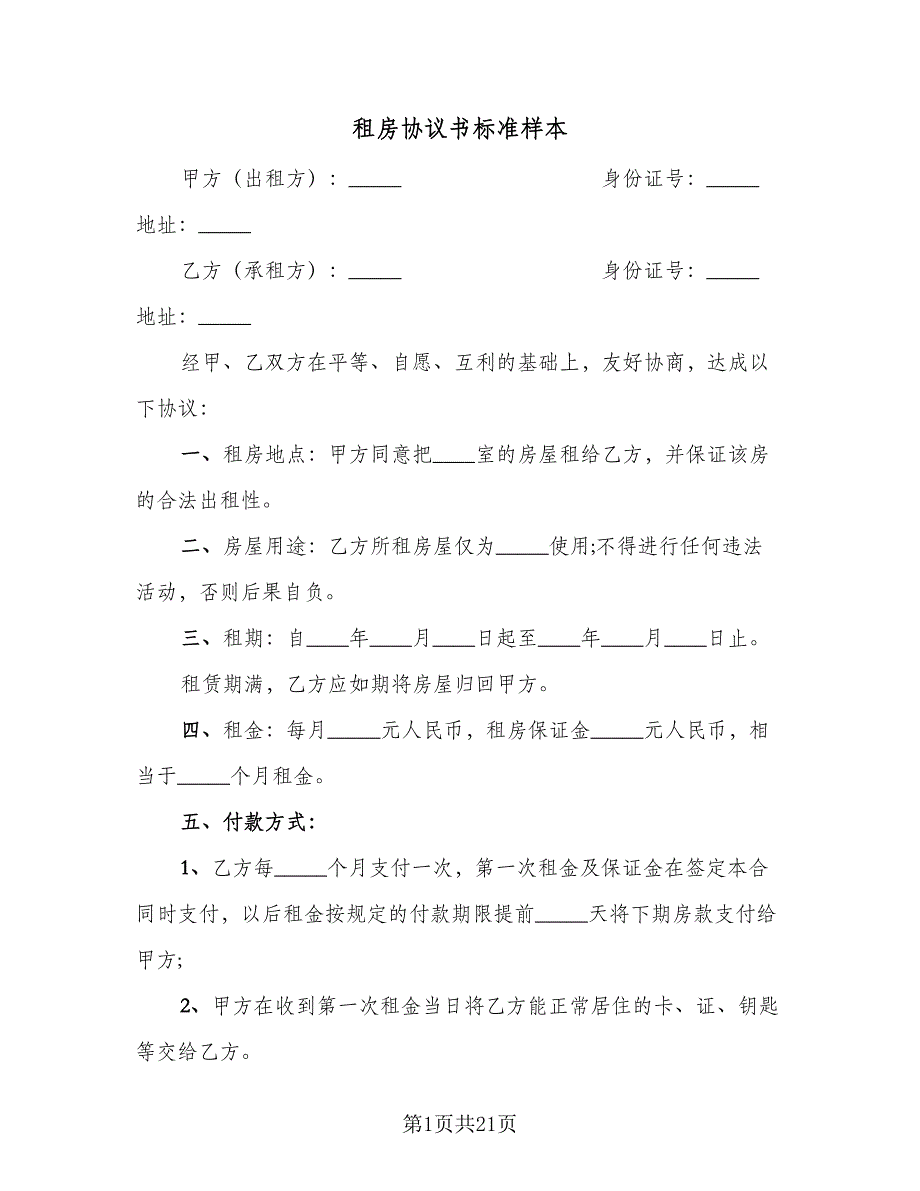 租房协议书标准样本
甲方（出租方）：_____ 身份证号：_____
地址：_____
乙方（承租方）：_____ 身份证号：_____
地址：_____
经甲、乙双方在平等、自愿、互利的基础上，友好协商，达成以
下协议：
一、租房地点：甲方同意把____室的房屋租给乙方，并保证该房
的合法出租性。
二、房屋用途：乙方所租房屋仅为_____使用;不得进行任何违法
活动，否则后果自负。
三、租期：自____年____月____日起至____年____月____日止。
租赁期满，乙方应如期将房屋归回甲方。
四、租金：每月_____元人民币，租房保证金_____元人民币，相
当于_____个月租金。
五、付款方式：
1、乙方每_____个月支付一次，第一次租金及保证金在签定本合
同时支付，以后租金按规定的付款期限提前_____天将下期房款支付给
甲方;
2、甲方在收到第一次租金当日将乙方能正常居住的卡、证、钥匙
等交给乙方。
第1页共21页